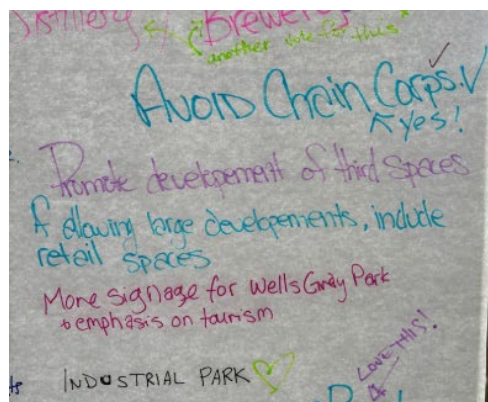 Distillery
Brewery
another vote for this
AVOID Chain Corps.
Yes!
Promote developement of third spaces
If allowing large developements, include
retail spaces
More signage for Wells Gray Park
& emphasis on tourism
LOVE THIS!
INDUSTRIAL PARK